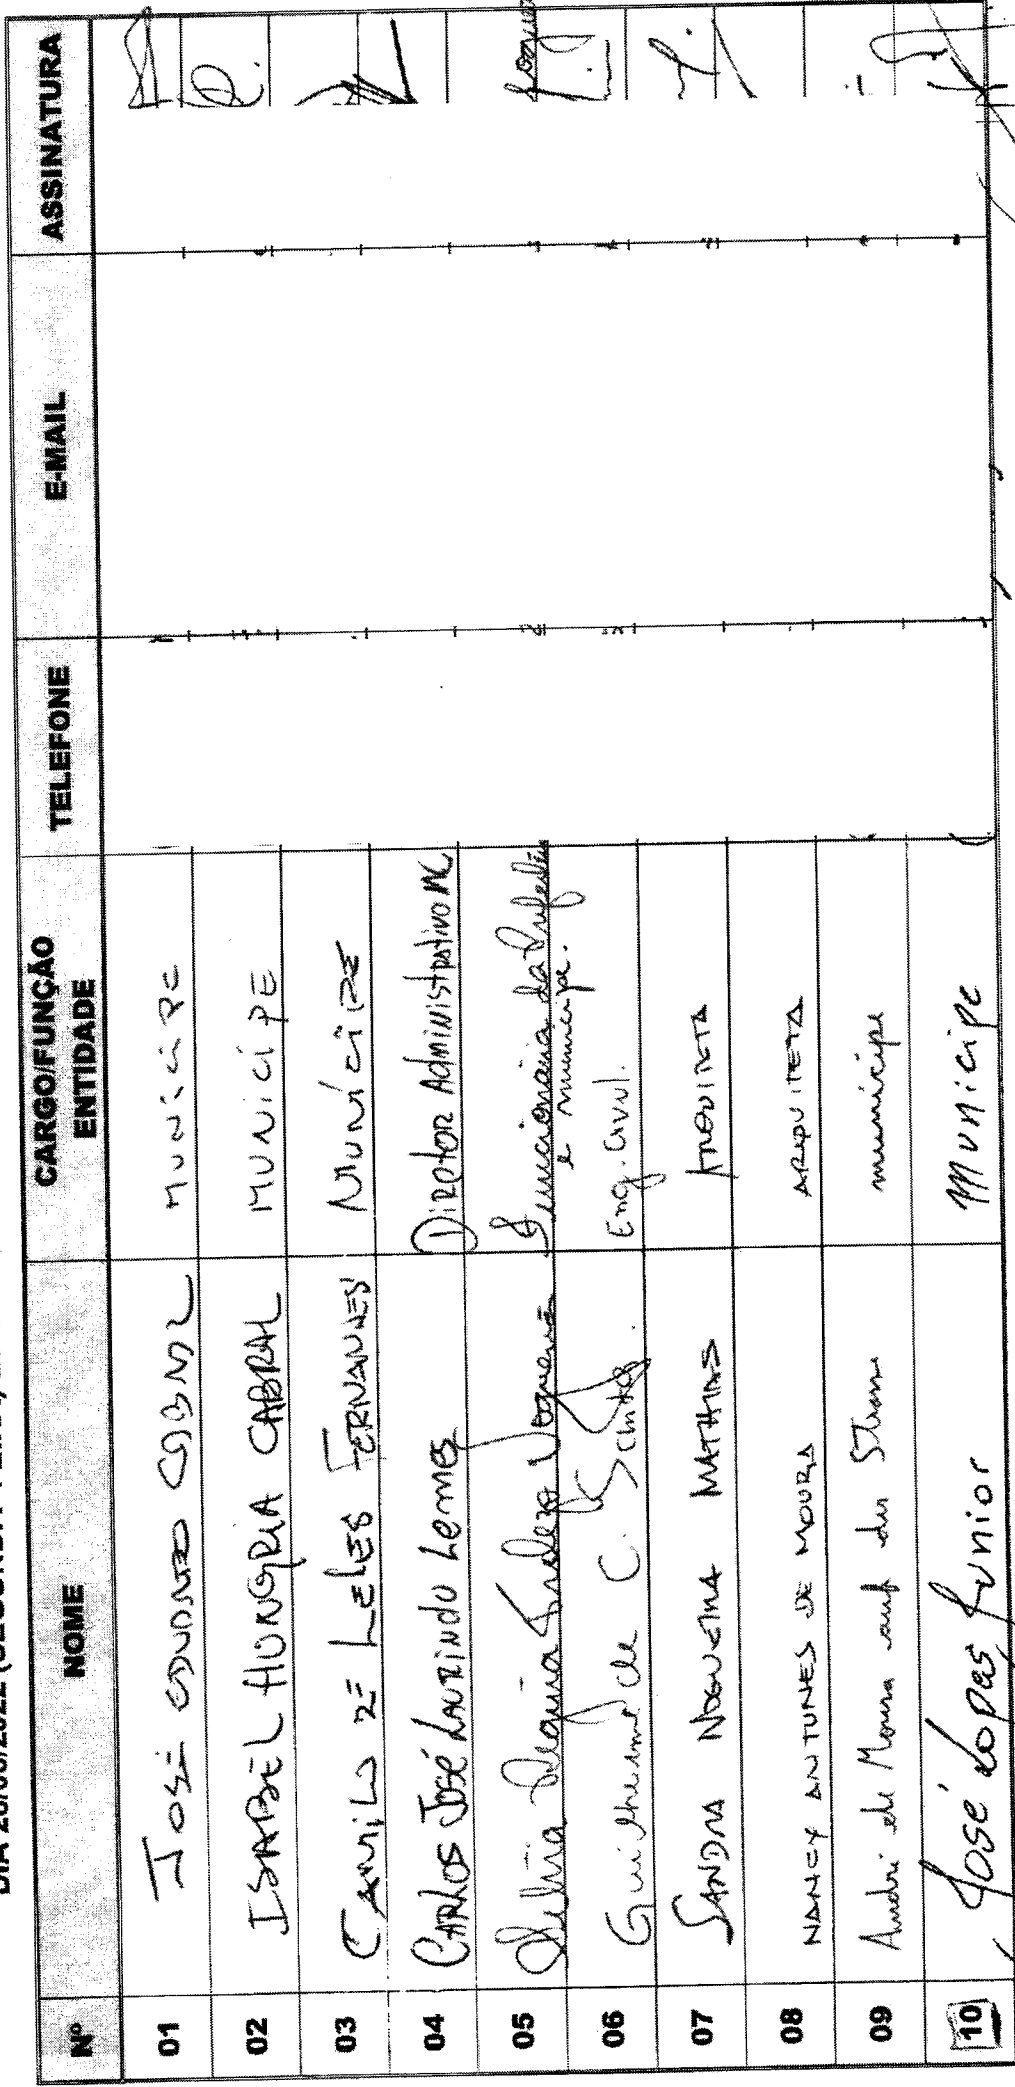 Nº NOME CARGO/FUNÇÃO ENTIDADE TELEFONE E-MAIL ASSINATURA
01 JOSÉ EDUARDO CABRAL MUNÍCIPE
02 ISABEL HUNGRIA CABRAL MUNICÍPE
03 CAMILO ZÉ LELES FERNANDES MUNÍCIPE
04 CARLOS José LAURINDO Lemes DIRETOR AdmiNistRativo MC
05 Regina Funcionária da Prefeitura
e munícipe.
06 Guilherme de C. Eng. Civil.
07 SANDRA NOGUEIRA MATHIAS ARQUITETA
08 NANCY ANTUNES DE MOURA ARQUITETA
09 André de Moura munícipe
10 José Lopes Junior Munícipe